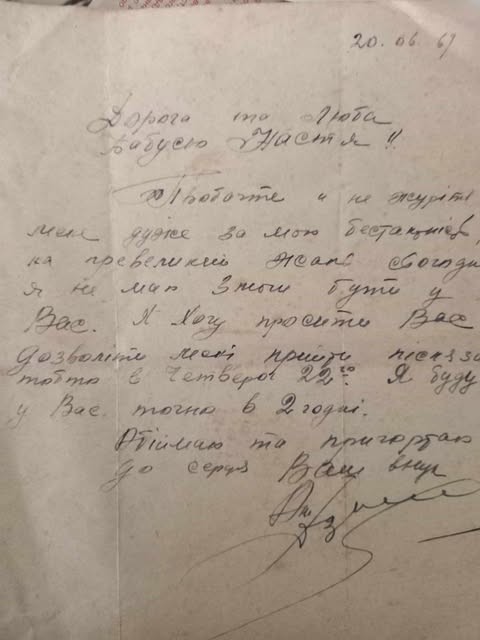 20. 06. 67
Дорога та Люба
Бабусю Настя!!
Пробачте и не журіть
мене дуже за мою бестактність,
на превеликий жаль сьогодн
я не маю змоги бути у
Вас. Я хочу просити Вас
дозволити мені прийти післяза
тобто в Четверг 22го. Я буду
у Вас точно в 2 годині.
Обіймаю та пригортаю
до серця Ваш внук